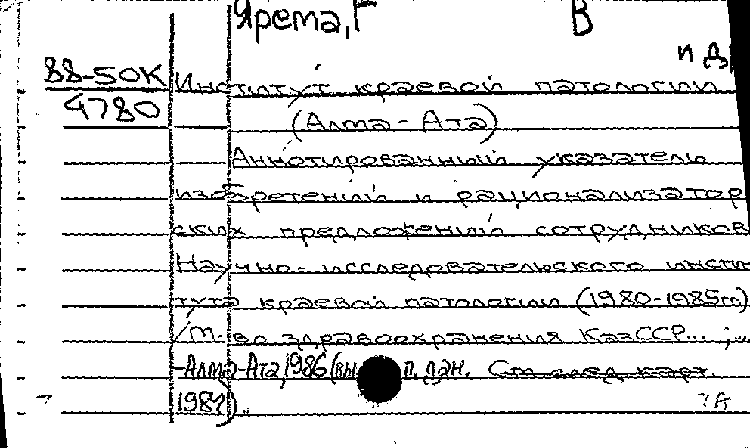 Ярема, Г В
и др
88-50К Институт краевой патологии
4780 (Алма-Ата)
Аннотированный указатель
изобретений и рационализатор
ских предложений сотрудников
Научно-исследовательского инсти
тута краевой патологии (1980-1985гг)
/М-во здравоохранения КазССР... ;..
-Алма-Ата, 1986 (вы п. дан. См след карт.
198?)..